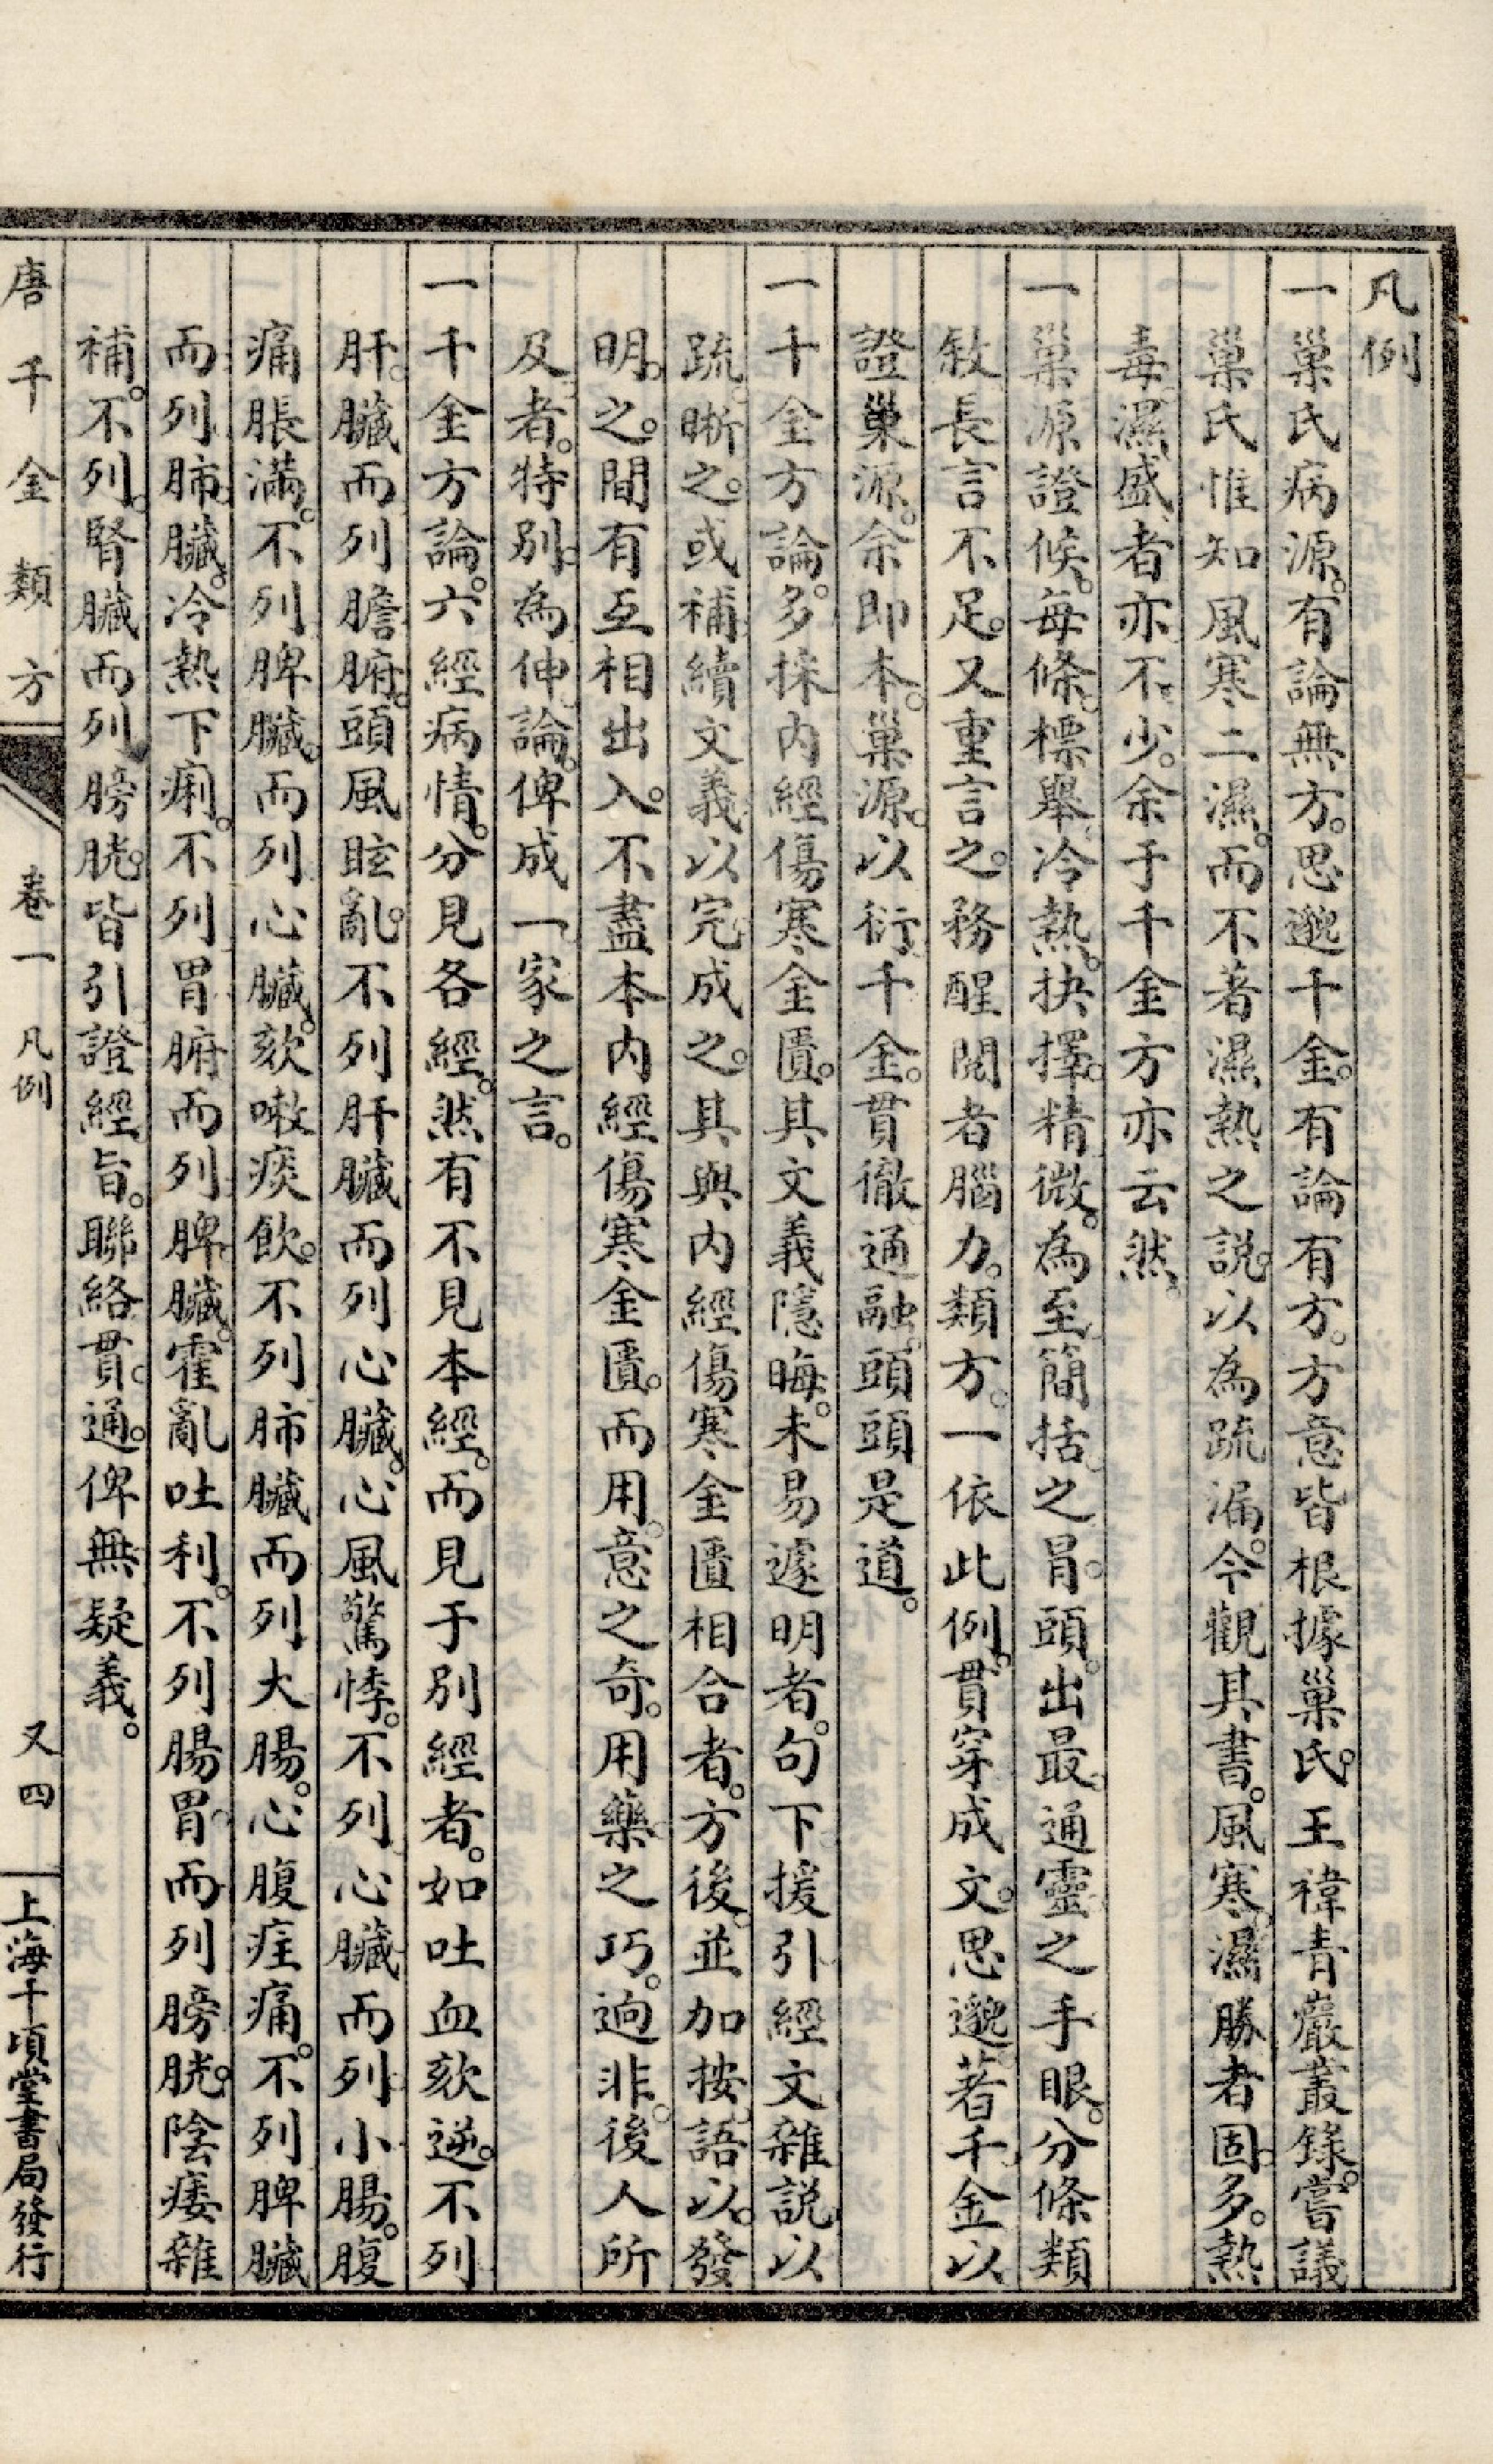 凡例
一巢氏病源。有論無方。思邈千金。有論有方。方意皆根據巢氏。王褘青巖叢錄。嘗議
巢氏惟知風寒二濕。而不著濕熱之說。以為疏漏。今觀其書。風寒濕勝者固多。熱
毒濕盛者亦不少。余于千金方亦云然。
一巢源證候。每條標舉冷熱。抉擇精微。為至簡括之冐頭。出最通靈之手眼。分條類
敘長言不足。又重言之。務醒閱者腦力。類方。一依此例。貫穿成文。思邈著千金以
證巢源。余即本巢源。以衍千金。貫徹通融。頭頭是道。
一千金方論。多採內經傷寒金匱。其文義隱晦。未易遽明者。句下援引經文雜說以
疏晰之。或補續文義以完成之。其與內經傷寒金匱相合者。方後並加按語以發
明之。間有互相出入。不盡本內經傷寒金匱。而用意之奇。用藥之巧。逈非後人所
及者。特別為伸論。俾成一家之言。
一千金方論。六經病情。分見各經。然有不見本經。而見于別經者。如吐血欬逆。不列
肝臟而列膽腑。頭風眩亂。不列肝臟而列心臟。心風驚悸。不列心臟而列小腸。腹
痛脹滿。不列脾臟。而列心臟。欬嗽痰飲。不列肺臟而列大腸。心腹疰痛。不列脾臟
而列肺臟。冷熱下痢。不列胃腑而列脾臟。霍亂吐利。不列腸胃而列膀胱。陰痿雜
補。不列腎臟而列膀胱。皆引證經旨。聯絡貫通。俾無疑義。
唐千金類方 卷一 凡例 又四 上海千頃堂書局發行